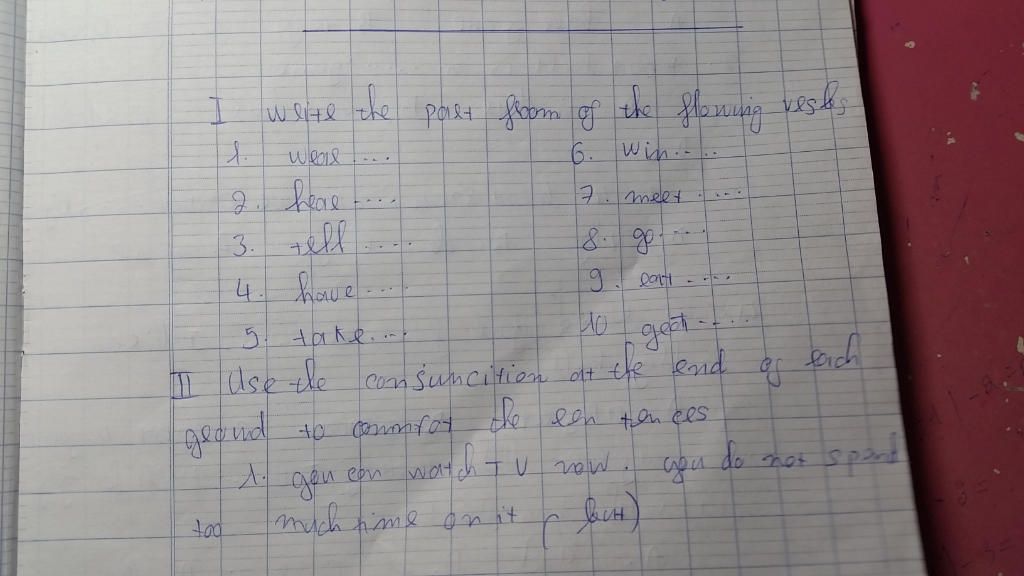 I write the past froom of the flowing verbs
1. wear .... 6. win.....
2. hear .... 7. meet ....
3. tell ..... 8. go....
4. have .... 9. eat ....
5. take.... 10 get.....
II Use the consjuncition at the end of each
groud to connrot the sen tences
1. you can watch T V now. you do not spend
too much time on it ( but)